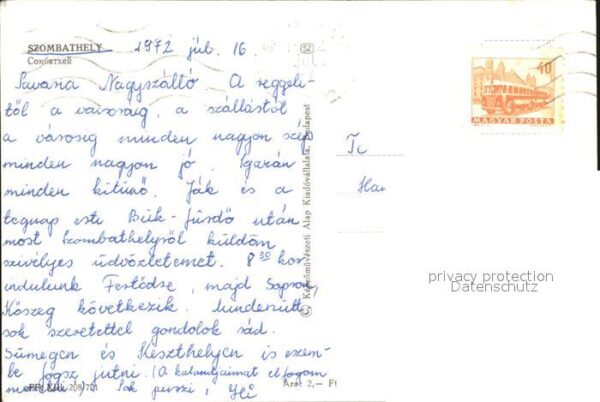 SZOMBATHELY 1972 júl. 16.
Сомбатхей
Savaria Nagyszálló A reggeli-
től a vacsoráig, a szállástól
a városig minden nagyon szép
minden nagyon jó. Igazán
minden kitűnő. Ják és a
tegnap esti Bük-fürdő után
most Szombathelyről küldöm
szívélyes üdvözletemet. 8 30 kor
indulunk Fertődre, majd Sopron
Kőszeg következik. Mindenütt
sok szeretettel gondolok rád.
Sümegen és Keszthelyen is eszem-
be fogsz jutni. (A kalandjaimat el fogom
mesélni) Sok puszi,
Ára: 2,— Ft
SZ
Képzőművészeti Alap Kiadóvállalata, Budapest
40
MAGYAR POSTA
privacy protection
Datenschutz